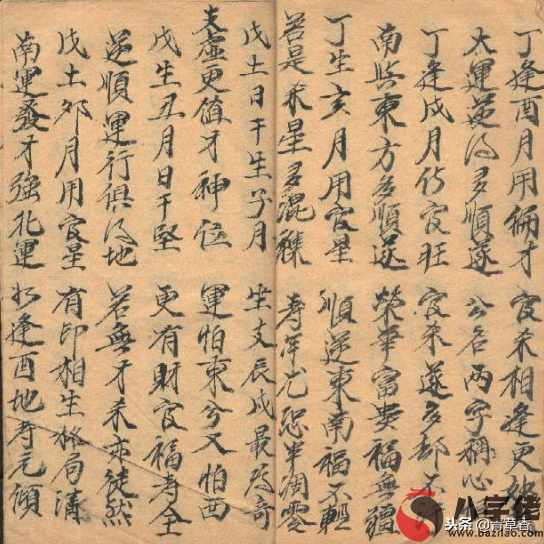 丁逢酉月用偏才 官杀相逢更
大運逆得多順遂 公名两字稱心
丁逢戌月傷官旺 官杀逢多却不
南與東方多順遂 荣華富贵福無疆
丁生亥月用官星 順逆東南福不輕
若是杀星多混襍 寿年尤恐半凋零
戊土日干生子月 坐支辰戌最為奇
支虚更值才神位 運怕東兮又怕西
戊生丑月日干堅 更有財官福寿全
逆順運行俱得地 若無才杀亦徒然
戊土卯月用官星 有印相生格局清
南運發才強北運 如逢酉地寿元傾
八字佬
www.bazilao.com
头条 @青草香